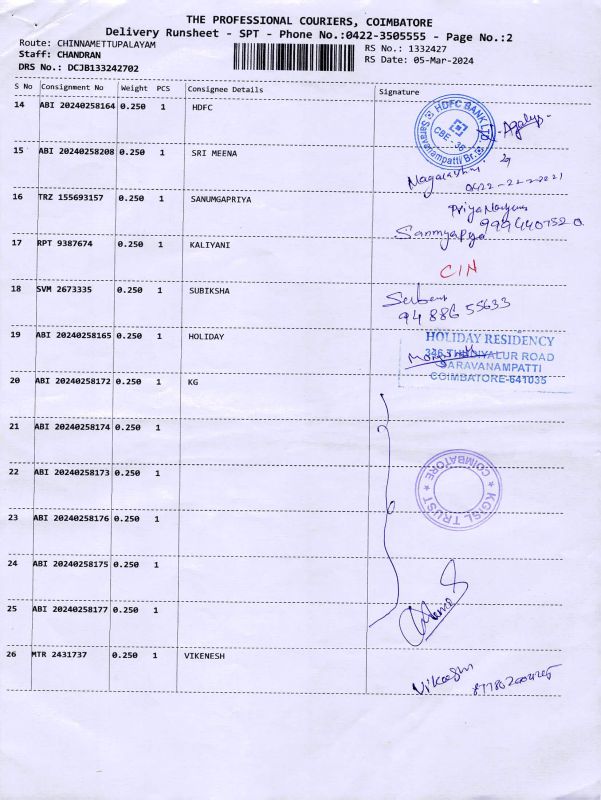 THE PROFESSIONAL COURIERS, COIMBATORE
Delivery Runsheet - SPT - Phone No.:0422-3505555 - Page No.:2
Route: CHINNAMETTUPALAYAM
RS No.: 1332427
Staff: CHANDRAN
RS Date: 05-Mar-2024
DRS No.: DCJB133242702
S No Consignment No Weight PCS Consignee Details Signature
14 ABI 20240258164 0.250 1 HDFC
HDFC BANK LTD
CBE - 35
Saravanampatti Br.
15 ABI 20240258208 0.250 1 SRI MEENA
Nagalakshmi
16 TRZ 155693157 0.250 1 SANUMGAPRIYA
17 RPT 9387674 0.250 1 KALIYANI
CIN
18 SVM 2673335 0.250 1 SUBIKSHA
94 886 55633
19 ABI 20240258165 0.250 1 HOLIDAY
HOLIDAY RESIDENCY
ROAD
SARAVANAMPATTI
COIMBATORE-641035
20 ABI 20240258172 0.250 1 KG
21 ABI 20240258174 0.250 1
22 ABI 20240258173 0.250 1
KGISL TRUST * COIMBATORE *
23 ABI 20240258176 0.250 1
24 ABI 20240258175 0.250 1
25 ABI 20240258177 0.250 1
26 MTR 2431737 0.250 1 VIKENESH